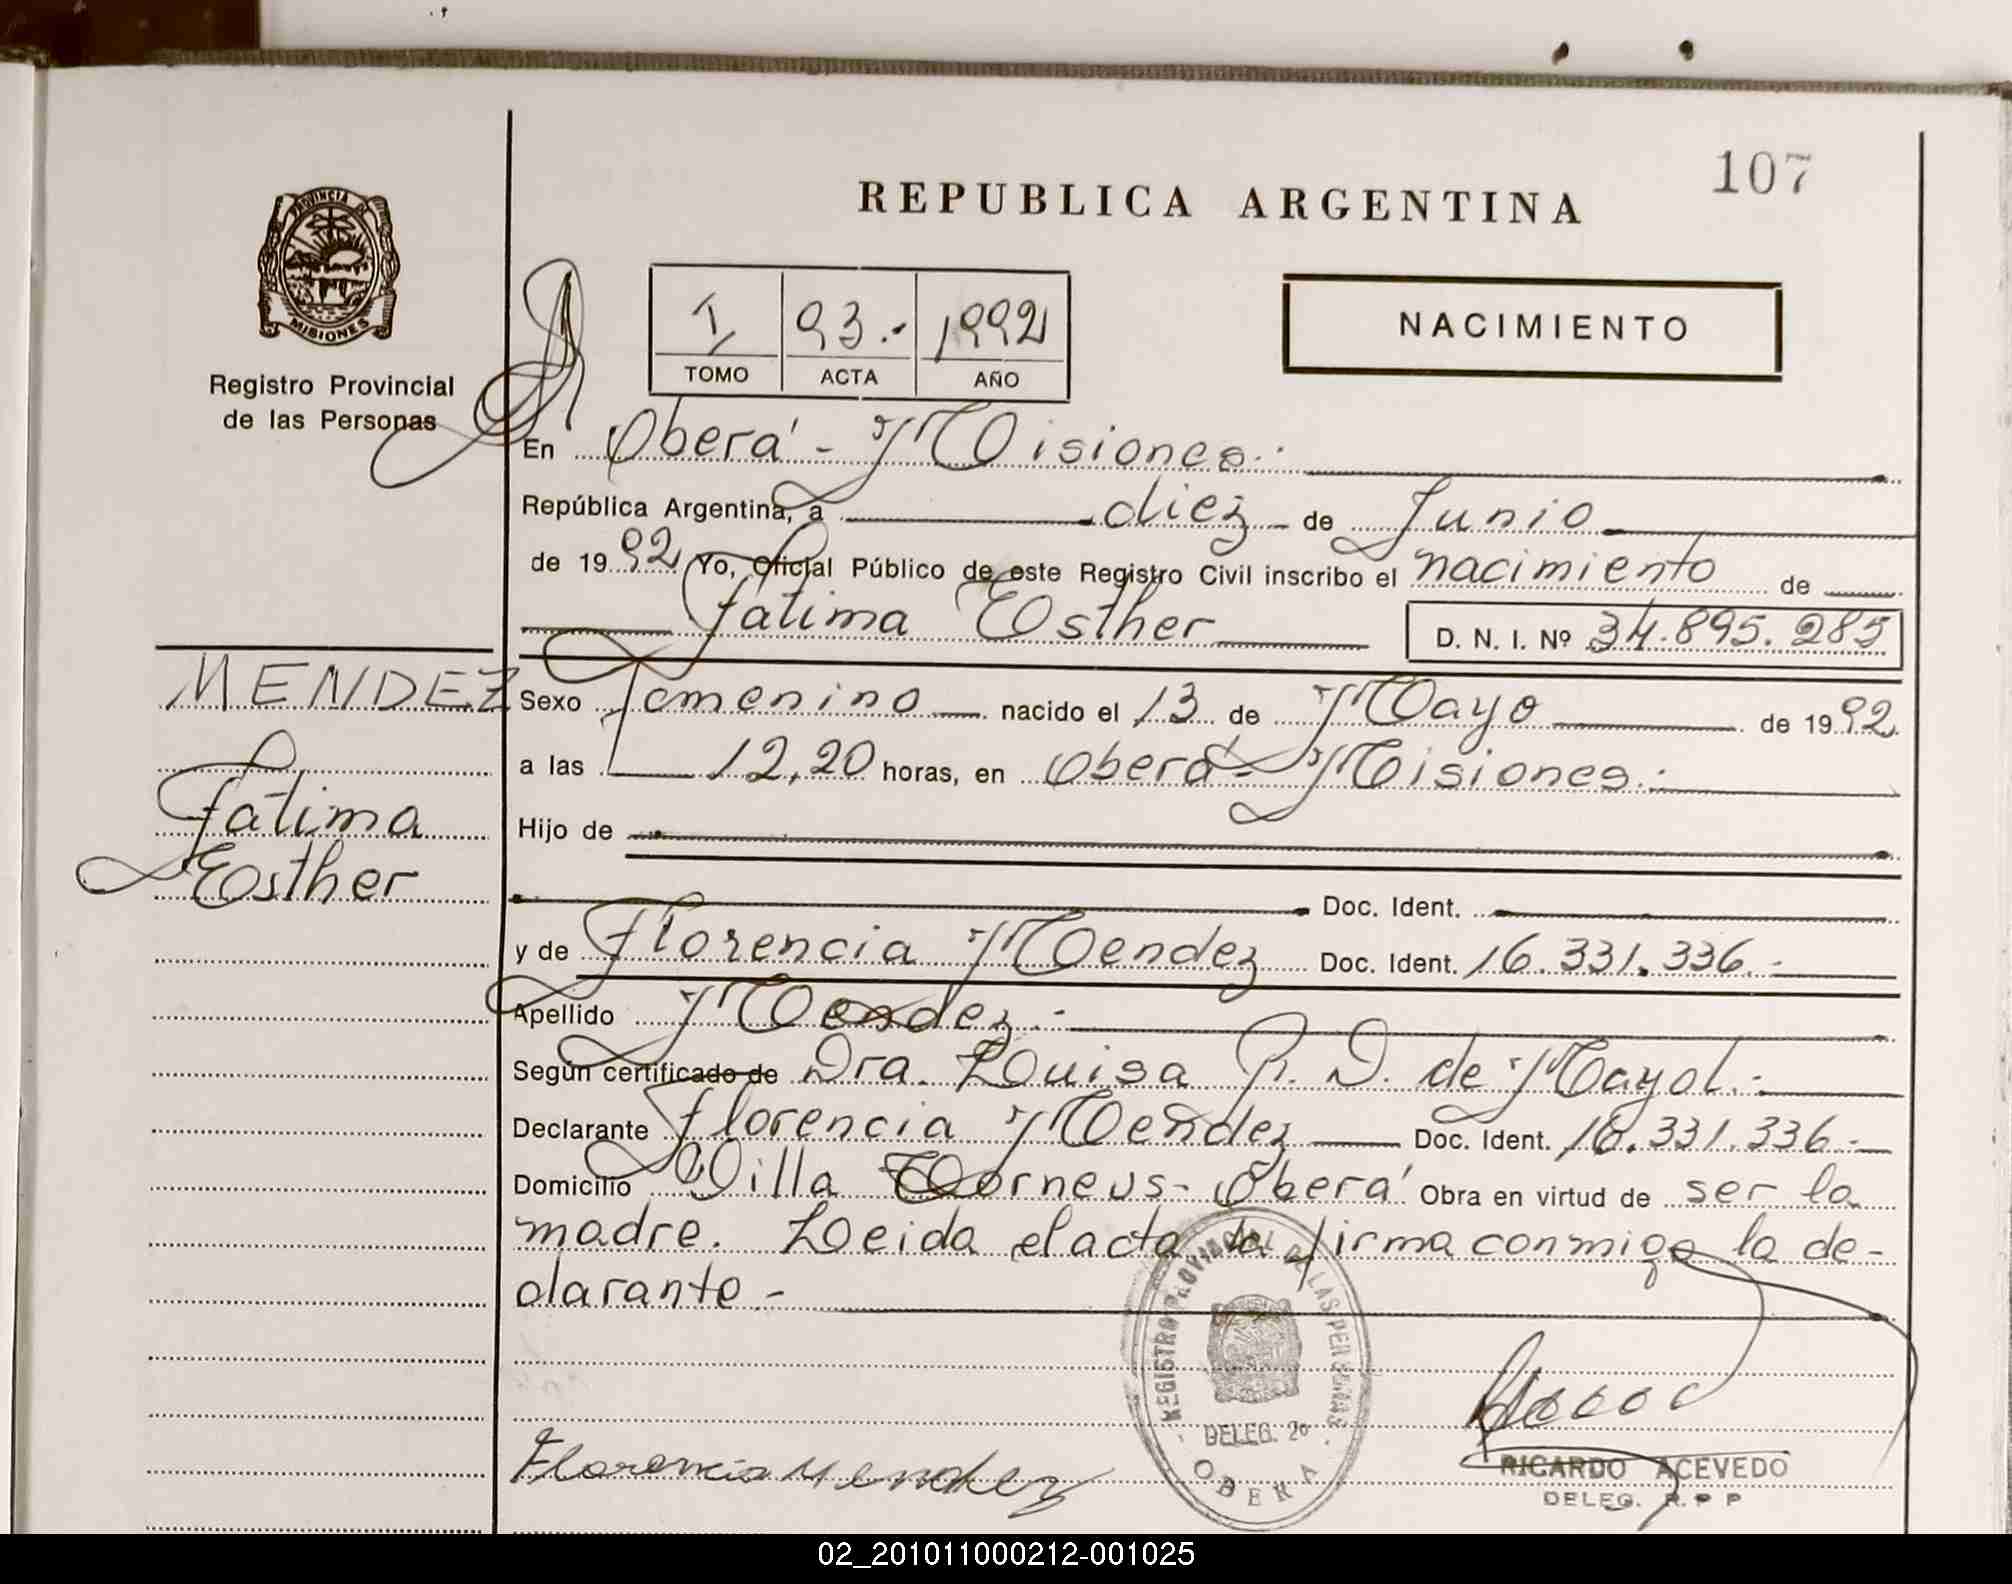 107
REPUBLICA ARGENTINA
PROVINCIA DE
MISIONES
Registro Provincial
de las Personas
I 93.- 1992
TOMO ACTA AÑO
NACIMIENTO
En Oberá - Misiones.-
República Argentina, a diez de Junio
de 1992 Yo, Oficial Público de este Registro Civil inscribo el nacimiento de
Fatima Esther D. N. I. Nº 34.895.285
MENDEZ
Fatima
Esther
Sexo femenino nacido el 13 de Mayo de 1992
a las 12,20 horas, en Oberá - Misiones.-
Hijo de
Doc. Ident.
y de Florencia Mendez Doc. Ident. 16.331.336.-
Apellido Mendez.-
Según certificado de Dra. Luisa P. D. de Mayol.-
Declarante Florencia Mendez Doc. Ident. 16.331.336.-
Domicilio Villa Torneus - Oberá. Obra en virtud de ser la
madre. Leida el acta la firma conmigo la de-
clarante -
REGISTRO PROVINCIAL DE LAS PERSONAS
DELEG. 2º
OBERA
Florencia Mendez
RICARDO ACEVEDO
DELEG. R. P P
02_201011000212-001025